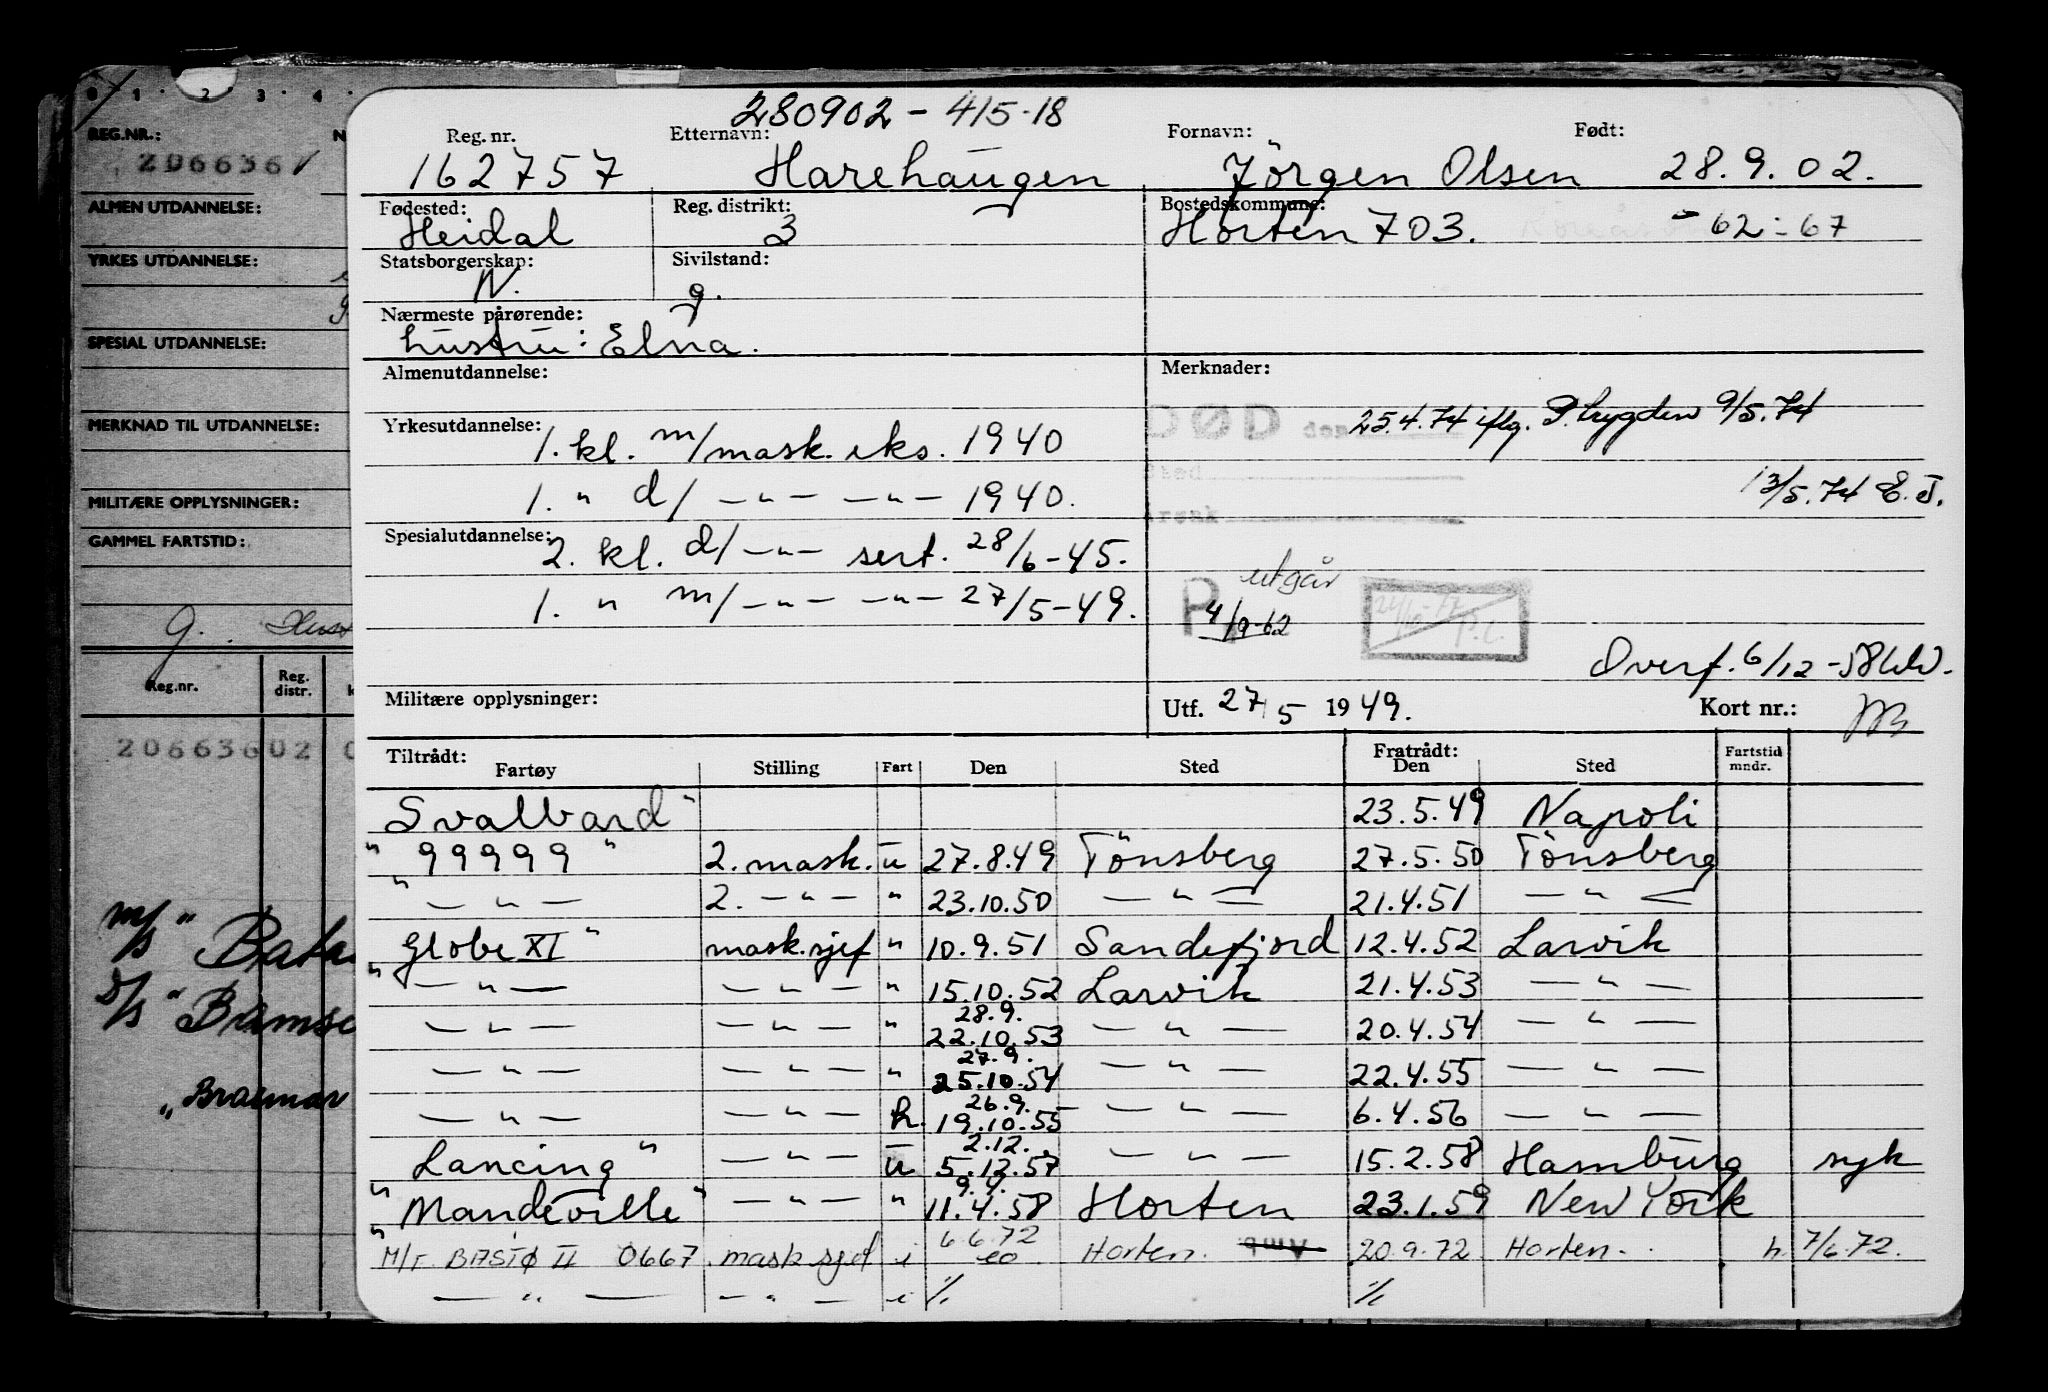 0 1 2 3 4
REG.NR.:
2066361
ALMEN UTDANNELSE:
YRKES UTDANNELSE:
SPESIAL UTDANNELSE:
MERKNAD TIL UTDANNELSE:
MILITÆRE OPPLYSNINGER:
GAMMEL FARTSTID:
g.
Reg.nr. Reg. distr.
20663602
M/S "
D/S "
" Braemar
280902 - 415-18
Reg. nr. Etternavn: Fornavn: Født:
162757 Harehaugen Jörgen Olsen 28.9.02.
Fødested: Reg. distrikt: Bostedskommune:
Heidal 3 Horten 703. 62-67
Statsborgerskap: Sivilstand:
N. g.
Nærmeste pårørende:
hustru: Elna.
Almenutdannelse: Merknader:
DØD 25.4.74 iflg. P.trygden 9/5.74
Yrkesutdannelse:
1. kl. m/mask. eks. 1940
13/5.74 E.J.
1. " d/ — " — — " — 1940.
Spesialutdannelse:
2. kl. d/ — " — sert. 28/6-45.
1. " m/ — " — — " — 27/5-49.
P utgår
4/9-62
Overf. 6/12-58
Militære opplysninger: Utf. 27/5 1949. Kort nr.:
Tiltrådt: Fratrådt:
Fartøy Stilling Fart Den Sted Den Sted Fartstid mndr.
Svalbard" 23.5.49 Napoli
"99999" 2. mask. u 27.8.49 Tönsberg 27.5.50 Tönsberg
" — " — 2. — " — " 23.10.50 — " — 21.4.51 — " —
Globe XI" mask.sjef " 10.9.51 Sandefjord 12.4.52 Larvik
" — " — — " — " 15.10.52 Larvik 21.4.53 — " —
28.9.
— " — — " — " 22.10.53 — " — 20.4.54 — " —
27.9.
— " — — " — " 25.10.54 — " — 22.4.55 — " —
26.9.
— " — — " — h. 19.10.55 — " — 6.4.56 — " —
2.12.
Lancing" — " — u 5.12.57 — " — 15.2.58 Hamburg syk
9.4.
"Mandeville" — " — " 11.4.58 Horten 23.1.59 New York
6.6.72
M/F. BASTØ II 0667 mask sjef i Horten. 20.9.72 Horten. h. 7/6.72.
— " — — " — i %. %